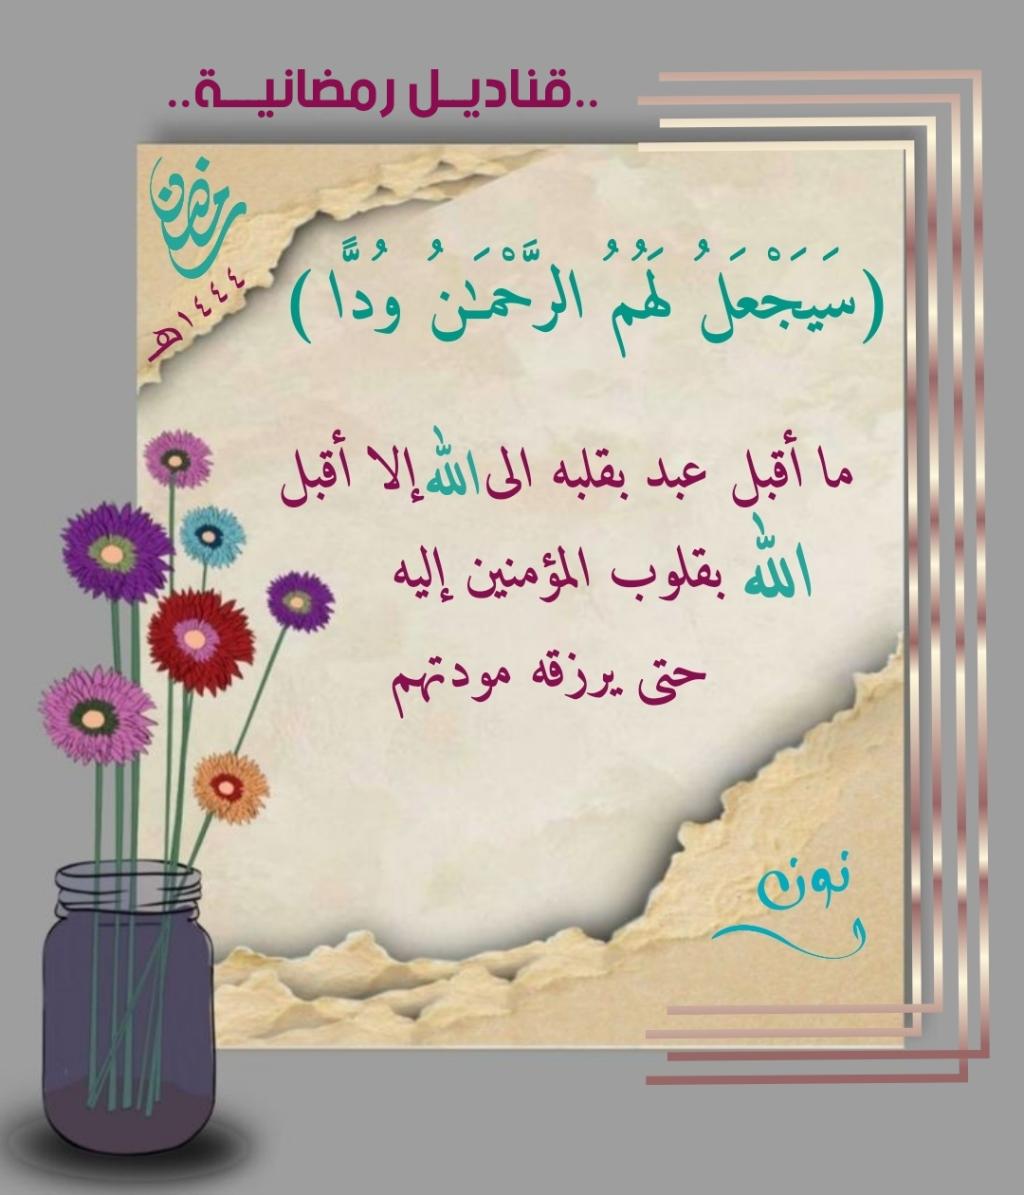 ..قناديــل رمضانيـــة..
رمضان
١٤٤٤هـ
(سَيَجْعَلُ لَهُمُ الرَّحْمَـٰنُ وُدًّا)
ما أقبل عبد بقلبه الى الله إلا أقبل
الله بقلوب المؤمنين إليه
حتى يرزقه مودتهم
نون